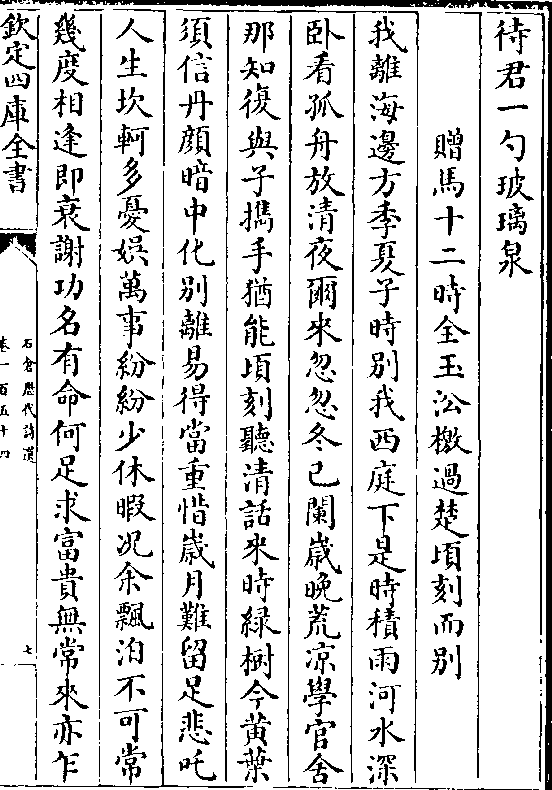 待君一勺玻璃泉
贈馬十二時全玉公檄過楚頃刻而别
我離海邊方季夏子時别我西庭下是時積雨河水深
卧看孤舟放清夜爾來忽忽冬已闌歲晚荒凉學官舍
那知復與子擕手猶能頃刻聽清話來時緑樹今黄葉
須信丹顔暗中化别離易得當重惜歲月難留足悲吒
人生坎軻多憂娯萬事紛紛少休暇况余飄泊不可常
幾度相逢即衰謝功名有命何足求富貴無常來亦乍
欽定四庫全書
石倉歴代詩選
卷一百五十四
七